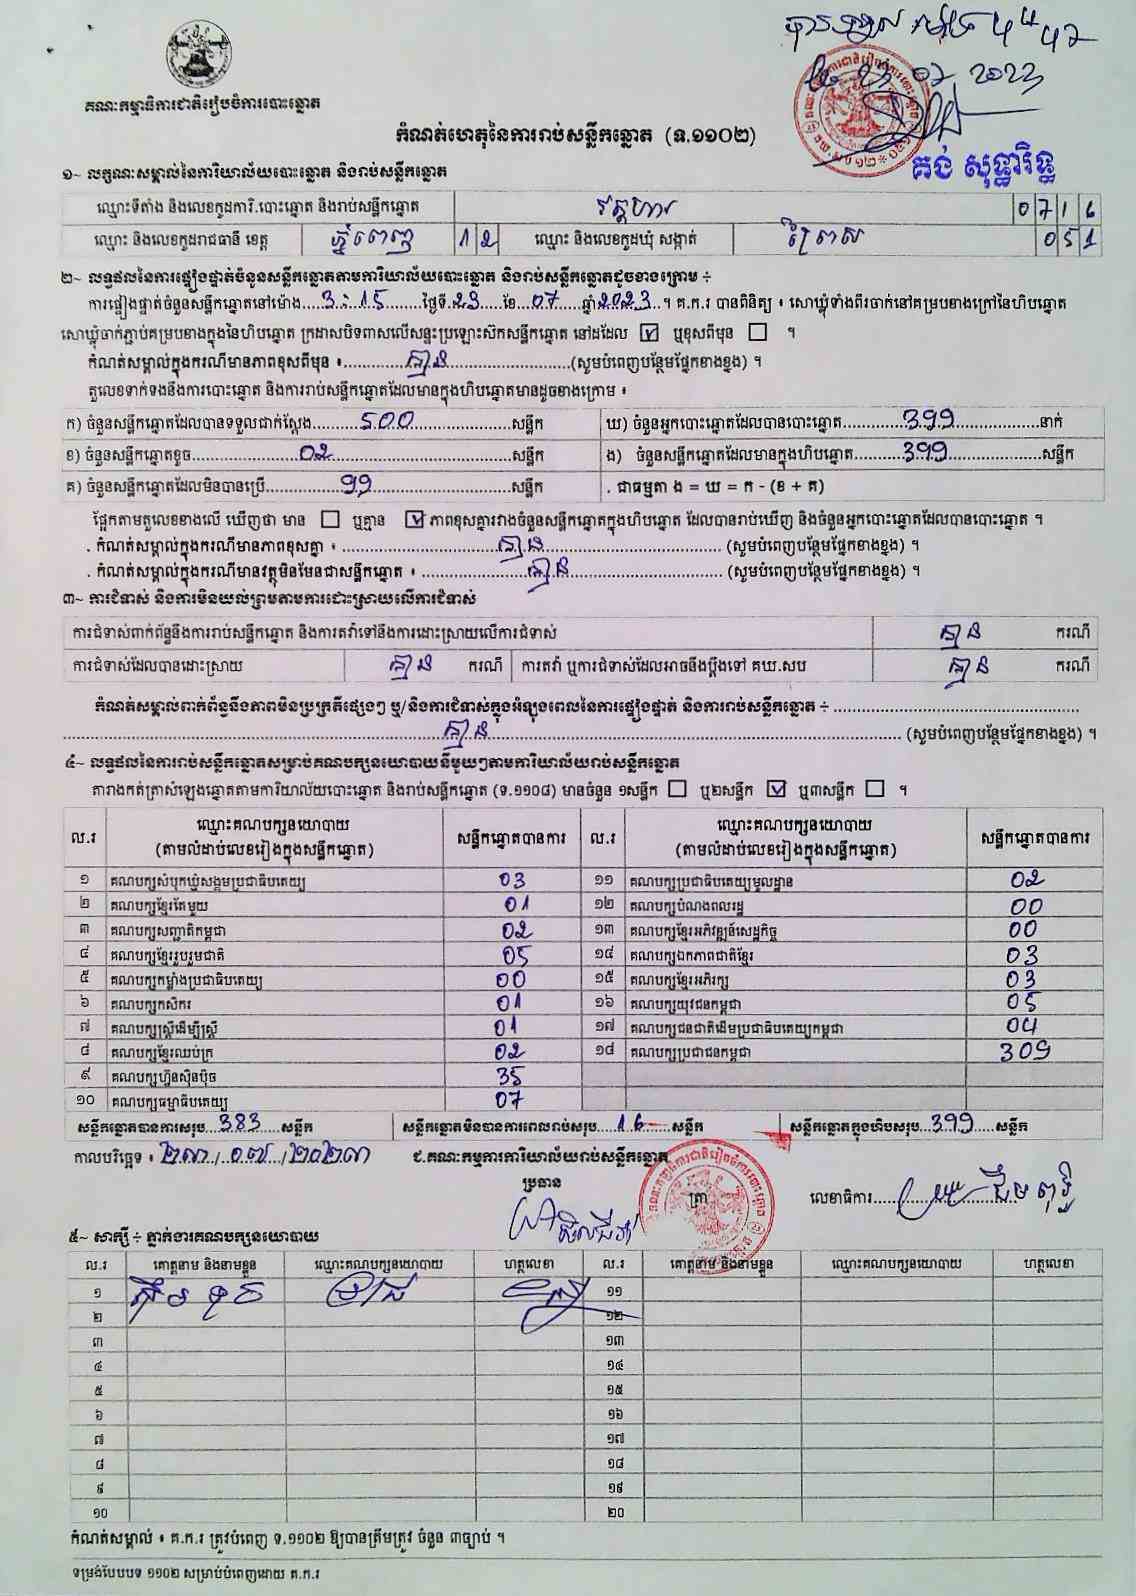 គណៈកម្មាធិការជាតិរៀបចំការបោះឆ្នោត
បានទទួល ម៉ោង
2023
គង់ សុទ្ធារិទ្ធ
កំណត់ហេតុនៃការរាប់សន្លឹកឆ្នោត (ទ.១១០២)
១~ លក្ខណៈសម្គាល់នៃការិយាល័យបោះឆ្នោត និងរាប់សន្លឹកឆ្នោត
ឈ្មោះទីតាំង និងលេខកូដការិ.បោះឆ្នោត និងរាប់សន្លឹកឆ្នោត 0716
ឈ្មោះ និងលេខកូដរាជធានី ខេត្ត ភ្នំពេញ 12 ឈ្មោះ និងលេខកូដឃុំ សង្កាត់ ព្រៃស 051
២~ លទ្ធផលនៃការផ្ទៀងផ្ទាត់ចំនួនសន្លឹកឆ្នោតតាមការិយាល័យបោះឆ្នោត និងរាប់សន្លឹកឆ្នោតដូចខាងក្រោម ÷
ការផ្ទៀងផ្ទាត់ចំនួនសន្លឹកឆ្នោតនៅម៉ោង...3:15...ថ្ងៃទី.23...ខែ.07...ឆ្នាំ.2023.។ គ.ក.រ បានពិនិត្យ ៖ សោឃ្លុំទាំងពីរចាក់នៅគម្របខាងក្រៅនៃហិបឆ្នោត
សោឃ្លុំចាក់ភ្ជាប់គម្របខាងក្នុងនៃហិបឆ្នោត ក្រដាសបិទពាសលើសន្ទះប្រឡោះស៊កសន្លឹកឆ្នោត នៅដដែល ☑ ឬខុសពីមុន ☐ ។
កំណត់សម្គាល់ក្នុងករណីមានភាពខុសពីមុន ៖...គ្មាន...(សូមបំពេញបន្ថែមផ្នែកខាងខ្នង) ។
តួលេខទាក់ទងនឹងការបោះឆ្នោត និងការរាប់សន្លឹកឆ្នោតដែលមានក្នុងហិបឆ្នោតមានដូចខាងក្រោម ៖
ក) ចំនួនសន្លឹកឆ្នោតដែលបានទទួលជាក់ស្តែង...500...សន្លឹក ឃ) ចំនួនអ្នកបោះឆ្នោតដែលបានបោះឆ្នោត...399...នាក់
ខ) ចំនួនសន្លឹកឆ្នោតខូច...02...សន្លឹក ង) ចំនួនសន្លឹកឆ្នោតដែលមានក្នុងហិបឆ្នោត...399...សន្លឹក
គ) ចំនួនសន្លឹកឆ្នោតដែលមិនបានប្រើ...99...សន្លឹក . ជាធម្មតា ង = ឃ = ក - (ខ + គ)
ផ្អែកតាមតួលេខខាងលើ ឃើញថា មាន ☐ ឬគ្មាន ☑ ភាពខុសគ្នារវាងចំនួនសន្លឹកឆ្នោតក្នុងហិបឆ្នោត ដែលបានរាប់ឃើញ និងចំនួនអ្នកបោះឆ្នោតដែលបានបោះឆ្នោត ។
. កំណត់សម្គាល់ក្នុងករណីមានភាពខុសគ្នា ៖ ...គ្មាន... (សូមបំពេញបន្ថែមផ្នែកខាងខ្នង) ។
. កំណត់សម្គាល់ក្នុងករណីមានវត្ថុមិនមែនជាសន្លឹកឆ្នោត ៖ ...គ្មាន... (សូមបំពេញបន្ថែមផ្នែកខាងខ្នង) ។
៣~ ការជំទាស់ និងការមិនយល់ព្រមតាមការដោះស្រាយលើការជំទាស់
ការជំទាស់ពាក់ព័ន្ធនឹងការរាប់សន្លឹកឆ្នោត និងការតវ៉ាទៅនឹងការដោះស្រាយលើការជំទាស់ គ្មាន ករណី
ការជំទាស់ដែលបានដោះស្រាយ គ្មាន ករណី ការតវ៉ា ឬការជំទាស់ដែលអាចនឹងប្តឹងទៅ គឃ.សប គ្មាន ករណី
កំណត់សម្គាល់ពាក់ព័ន្ធនឹងភាពមិនប្រក្រតីផ្សេងៗ ឬ/និងការជំទាស់ក្នុងអំឡុងពេលនៃការផ្ទៀងផ្ទាត់ និងការរាប់សន្លឹកឆ្នោត ÷ ...
...គ្មាន... (សូមបំពេញបន្ថែមផ្នែកខាងខ្នង) ។
៤~ លទ្ធផលនៃការរាប់សន្លឹកឆ្នោតសម្រាប់គណបក្សនយោបាយនីមួយៗតាមការិយាល័យរាប់សន្លឹកឆ្នោត
តារាងកត់ត្រាសំឡេងឆ្នោតតាមការិយាល័យបោះឆ្នោត និងរាប់សន្លឹកឆ្នោត (ទ.១១០៨) មានចំនួន ១សន្លឹក ☐ ឬ២សន្លឹក ☑ ឬ៣សន្លឹក ☐ ។
ល.រ ឈ្មោះគណបក្សនយោបាយ (តាមលំដាប់លេខរៀងក្នុងសន្លឹកឆ្នោត) សន្លឹកឆ្នោតបានការ ល.រ ឈ្មោះគណបក្សនយោបាយ (តាមលំដាប់លេខរៀងក្នុងសន្លឹកឆ្នោត) សន្លឹកឆ្នោតបានការ
១ គណបក្សសំបុកឃ្មុំសង្គមប្រជាធិបតេយ្យ 03 ១១ គណបក្សប្រជាធិបតេយ្យមូលដ្ឋាន 02
២ គណបក្សខ្មែរតែមួយ 01 ១២ គណបក្សបំណងពលរដ្ឋ 00
៣ គណបក្សសញ្ជាតិកម្ពុជា 02 ១៣ គណបក្សខ្មែរអភិវឌ្ឍន៍សេដ្ឋកិច្ច 00
៤ គណបក្សខ្មែររួបរួមជាតិ 05 ១៤ គណបក្សឯកភាពជាតិខ្មែរ 03
៥ គណបក្សកម្លាំងប្រជាធិបតេយ្យ 00 ១៥ គណបក្សខ្មែរអភិរក្ស 03
៦ គណបក្សកសិករ 01 ១៦ គណបក្សយុវជនកម្ពុជា 05
៧ គណបក្សស្ត្រីដើម្បីស្ត្រី 01 ១៧ គណបក្សជនជាតិដើមប្រជាធិបតេយ្យកម្ពុជា 04
៨ គណបក្សខ្មែរឈប់ក្រ 02 ១៨ គណបក្សប្រជាជនកម្ពុជា 309
៩ គណបក្សហ៊្វុនស៊ិនប៉ិច 35
១០ គណបក្សធម្មាធិបតេយ្យ 07
សន្លឹកឆ្នោតបានការសរុប...383...សន្លឹក សន្លឹកឆ្នោតមិនបានការពេលរាប់សរុប...16...សន្លឹក សន្លឹកឆ្នោតក្នុងហិបសរុប...399...សន្លឹក
កាលបរិច្ឆេទ ៖ ២៣/០៧/២០២៣ ជ.គណៈកម្មការការិយាល័យរាប់សន្លឹកឆ្នោត
ប្រធាន ត្រា លេខាធិការ...
៥~ សាក្សី ÷ ភ្នាក់ងារគណបក្សនយោបាយ
ល.រ គោត្តនាម និងនាមខ្លួន ឈ្មោះគណបក្សនយោបាយ ហត្ថលេខា ល.រ គោត្តនាម និងនាមខ្លួន ឈ្មោះគណបក្សនយោបាយ ហត្ថលេខា
១ ១១
២ ១២
៣ ១៣
៤ ១៤
៥ ១៥
៦ ១៦
៧ ១៧
៨ ១៨
៩ ១៩
១០ ២០
កំណត់សម្គាល់ ៖ គ.ក.រ ត្រូវបំពេញ ទ.១១០២ ឱ្យបានត្រឹមត្រូវ ចំនួន ៣ច្បាប់ ។
ទម្រង់បែបបទ ១១០២ សម្រាប់បំពេញដោយ គ.ក.រ